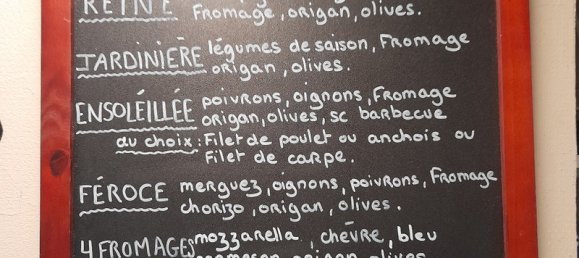 REINE
Fromage, origan, olives.
JARDINIÈRE légumes de saison, Fromage
origan, olives.
ENSOLÉILLÉE poivrons, oignons, Fromage
origan, olives, sc barbecue
au choix : Filet de poulet ou anchois ou
Filet de carpe.
FÉROCE merguez, oignons, poivrons, Fromage
chorizo, origan, olives.
4 FROMAGES mozzarella, chèvre, bleu
parmesan, origan, olives